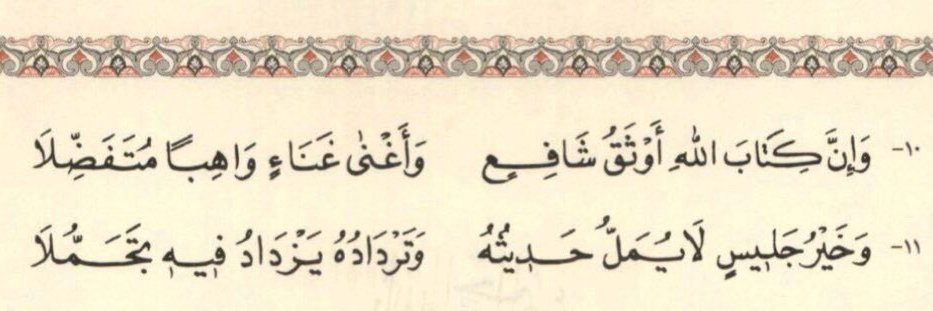 ١٠- وَإِنَّ كِتَابَ اللهِ أَوْثَقُ شَافِعٍ وَأَغْنَىٰ غَنَاءٍ وَاهِبًا مُتَفَضِّلَا
١١- وَخَيْرُ جَلِيسٍ لَا يُمَلُّ حَدِيثُهُ وَتَرْدَادُهُ يَزْدَادُ فِيهِ تَجَمُّلَا